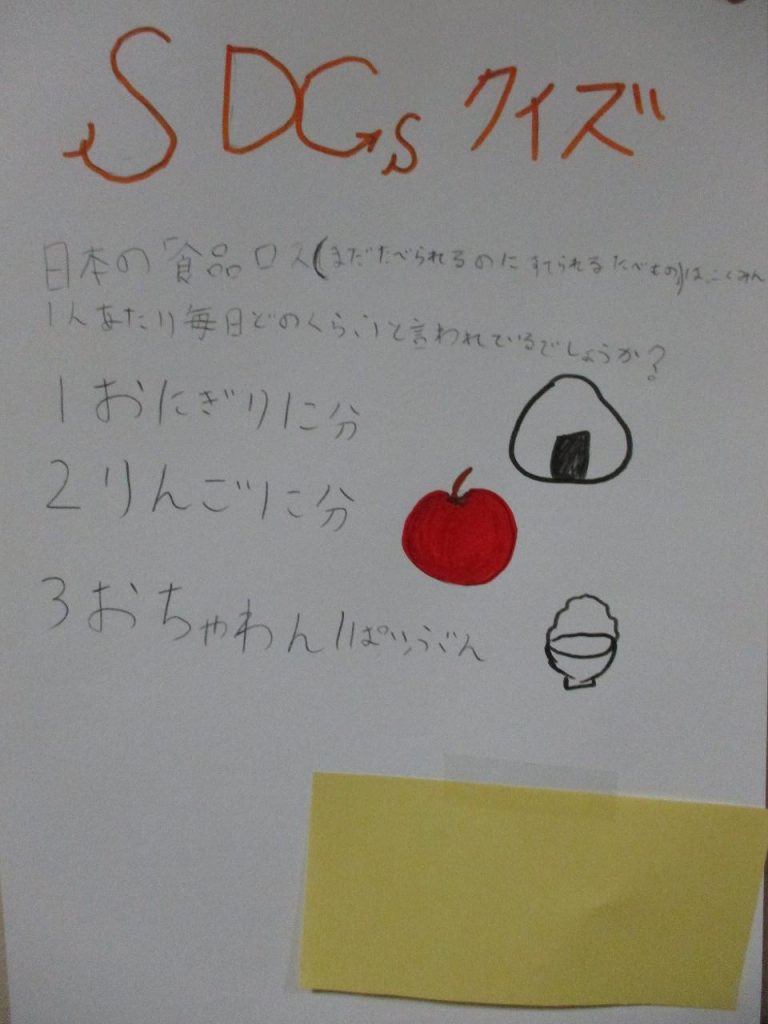 SDGsクイズ
日本の「食品ロス(まだたべられるのにすてられるたべもの)は、こくみん
1人あたり毎日どのくらいと言われているでしょうか?
1おにぎりに分
2りんごに分
3おちゃわん1ぱいうごん